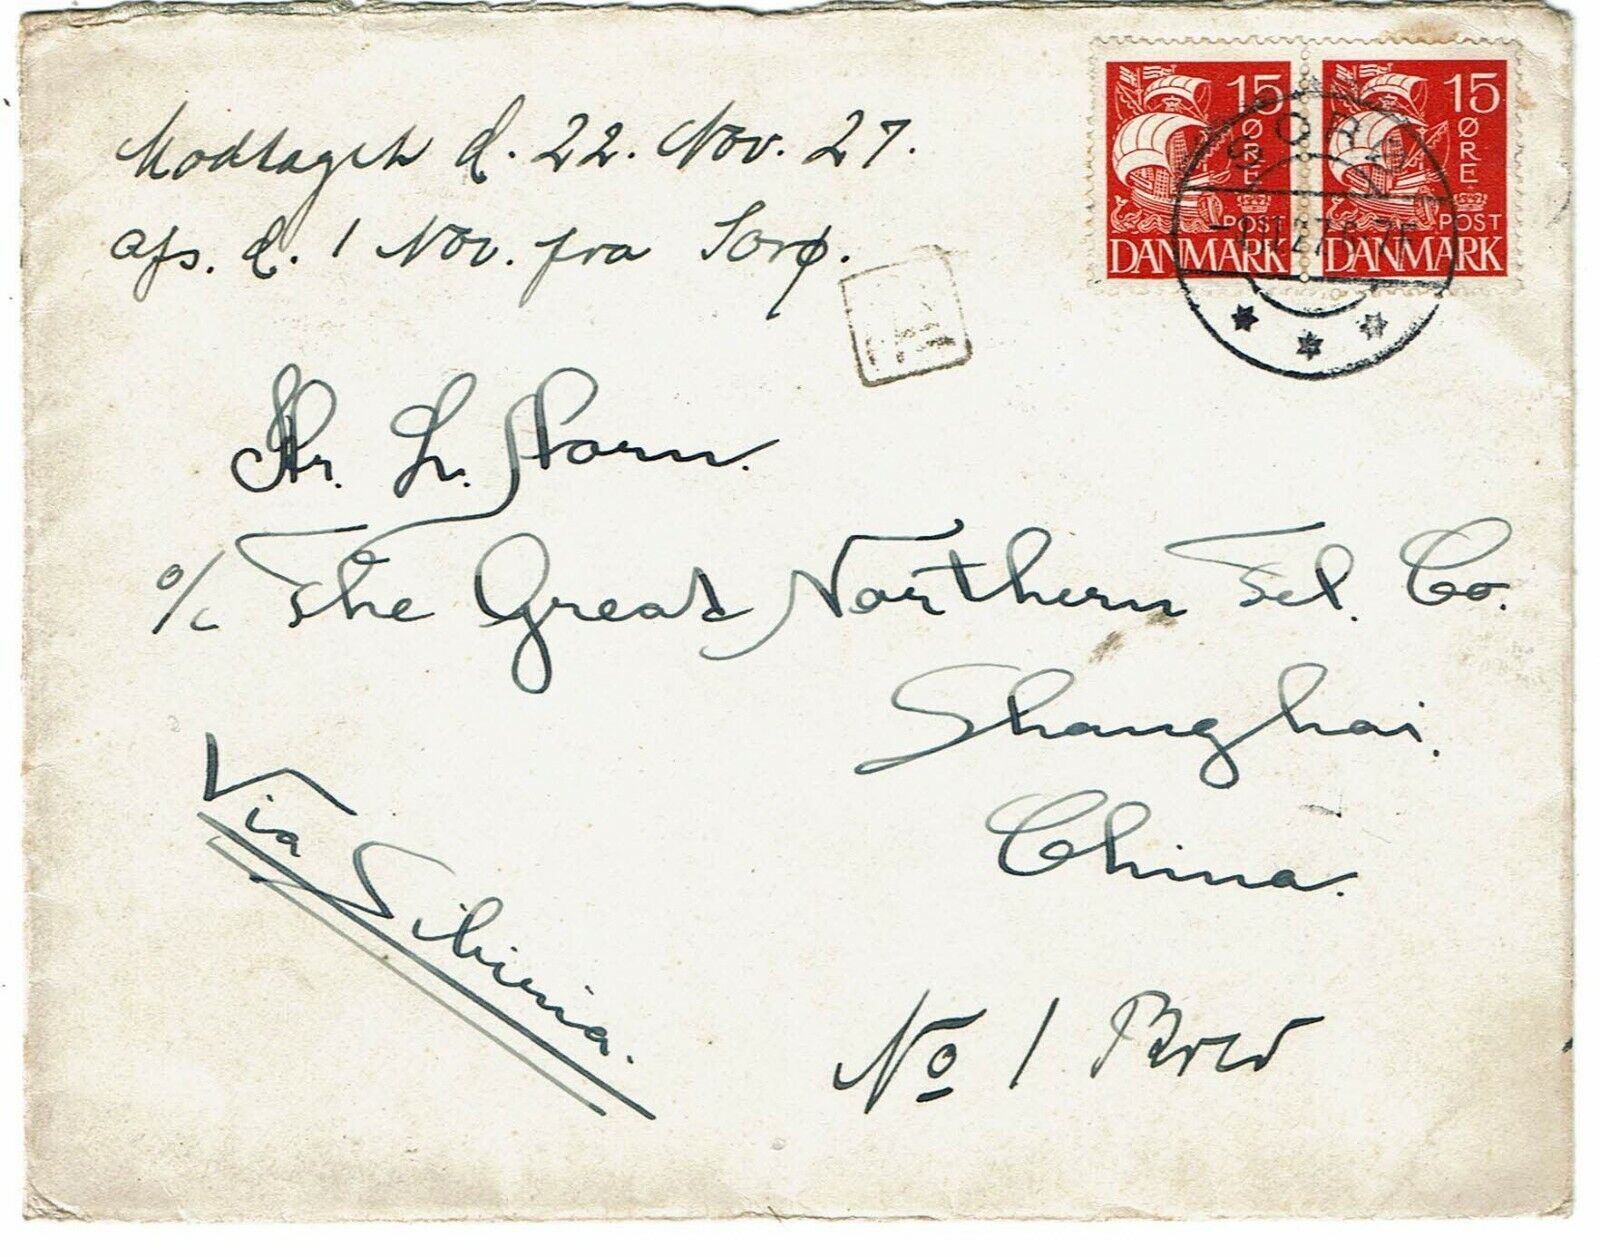 Modtaget d. 22. Nov. 27.
afs. d. 1 Nov. fra Sorø.
15 ØRE POST DANMARK
15 ØRE POST DANMARK
SORØ
Hr. L. Storm.
c/o The Great Northern Tel. Co.
Shanghai.
China.
Via Sibiria.
No 1 Brev